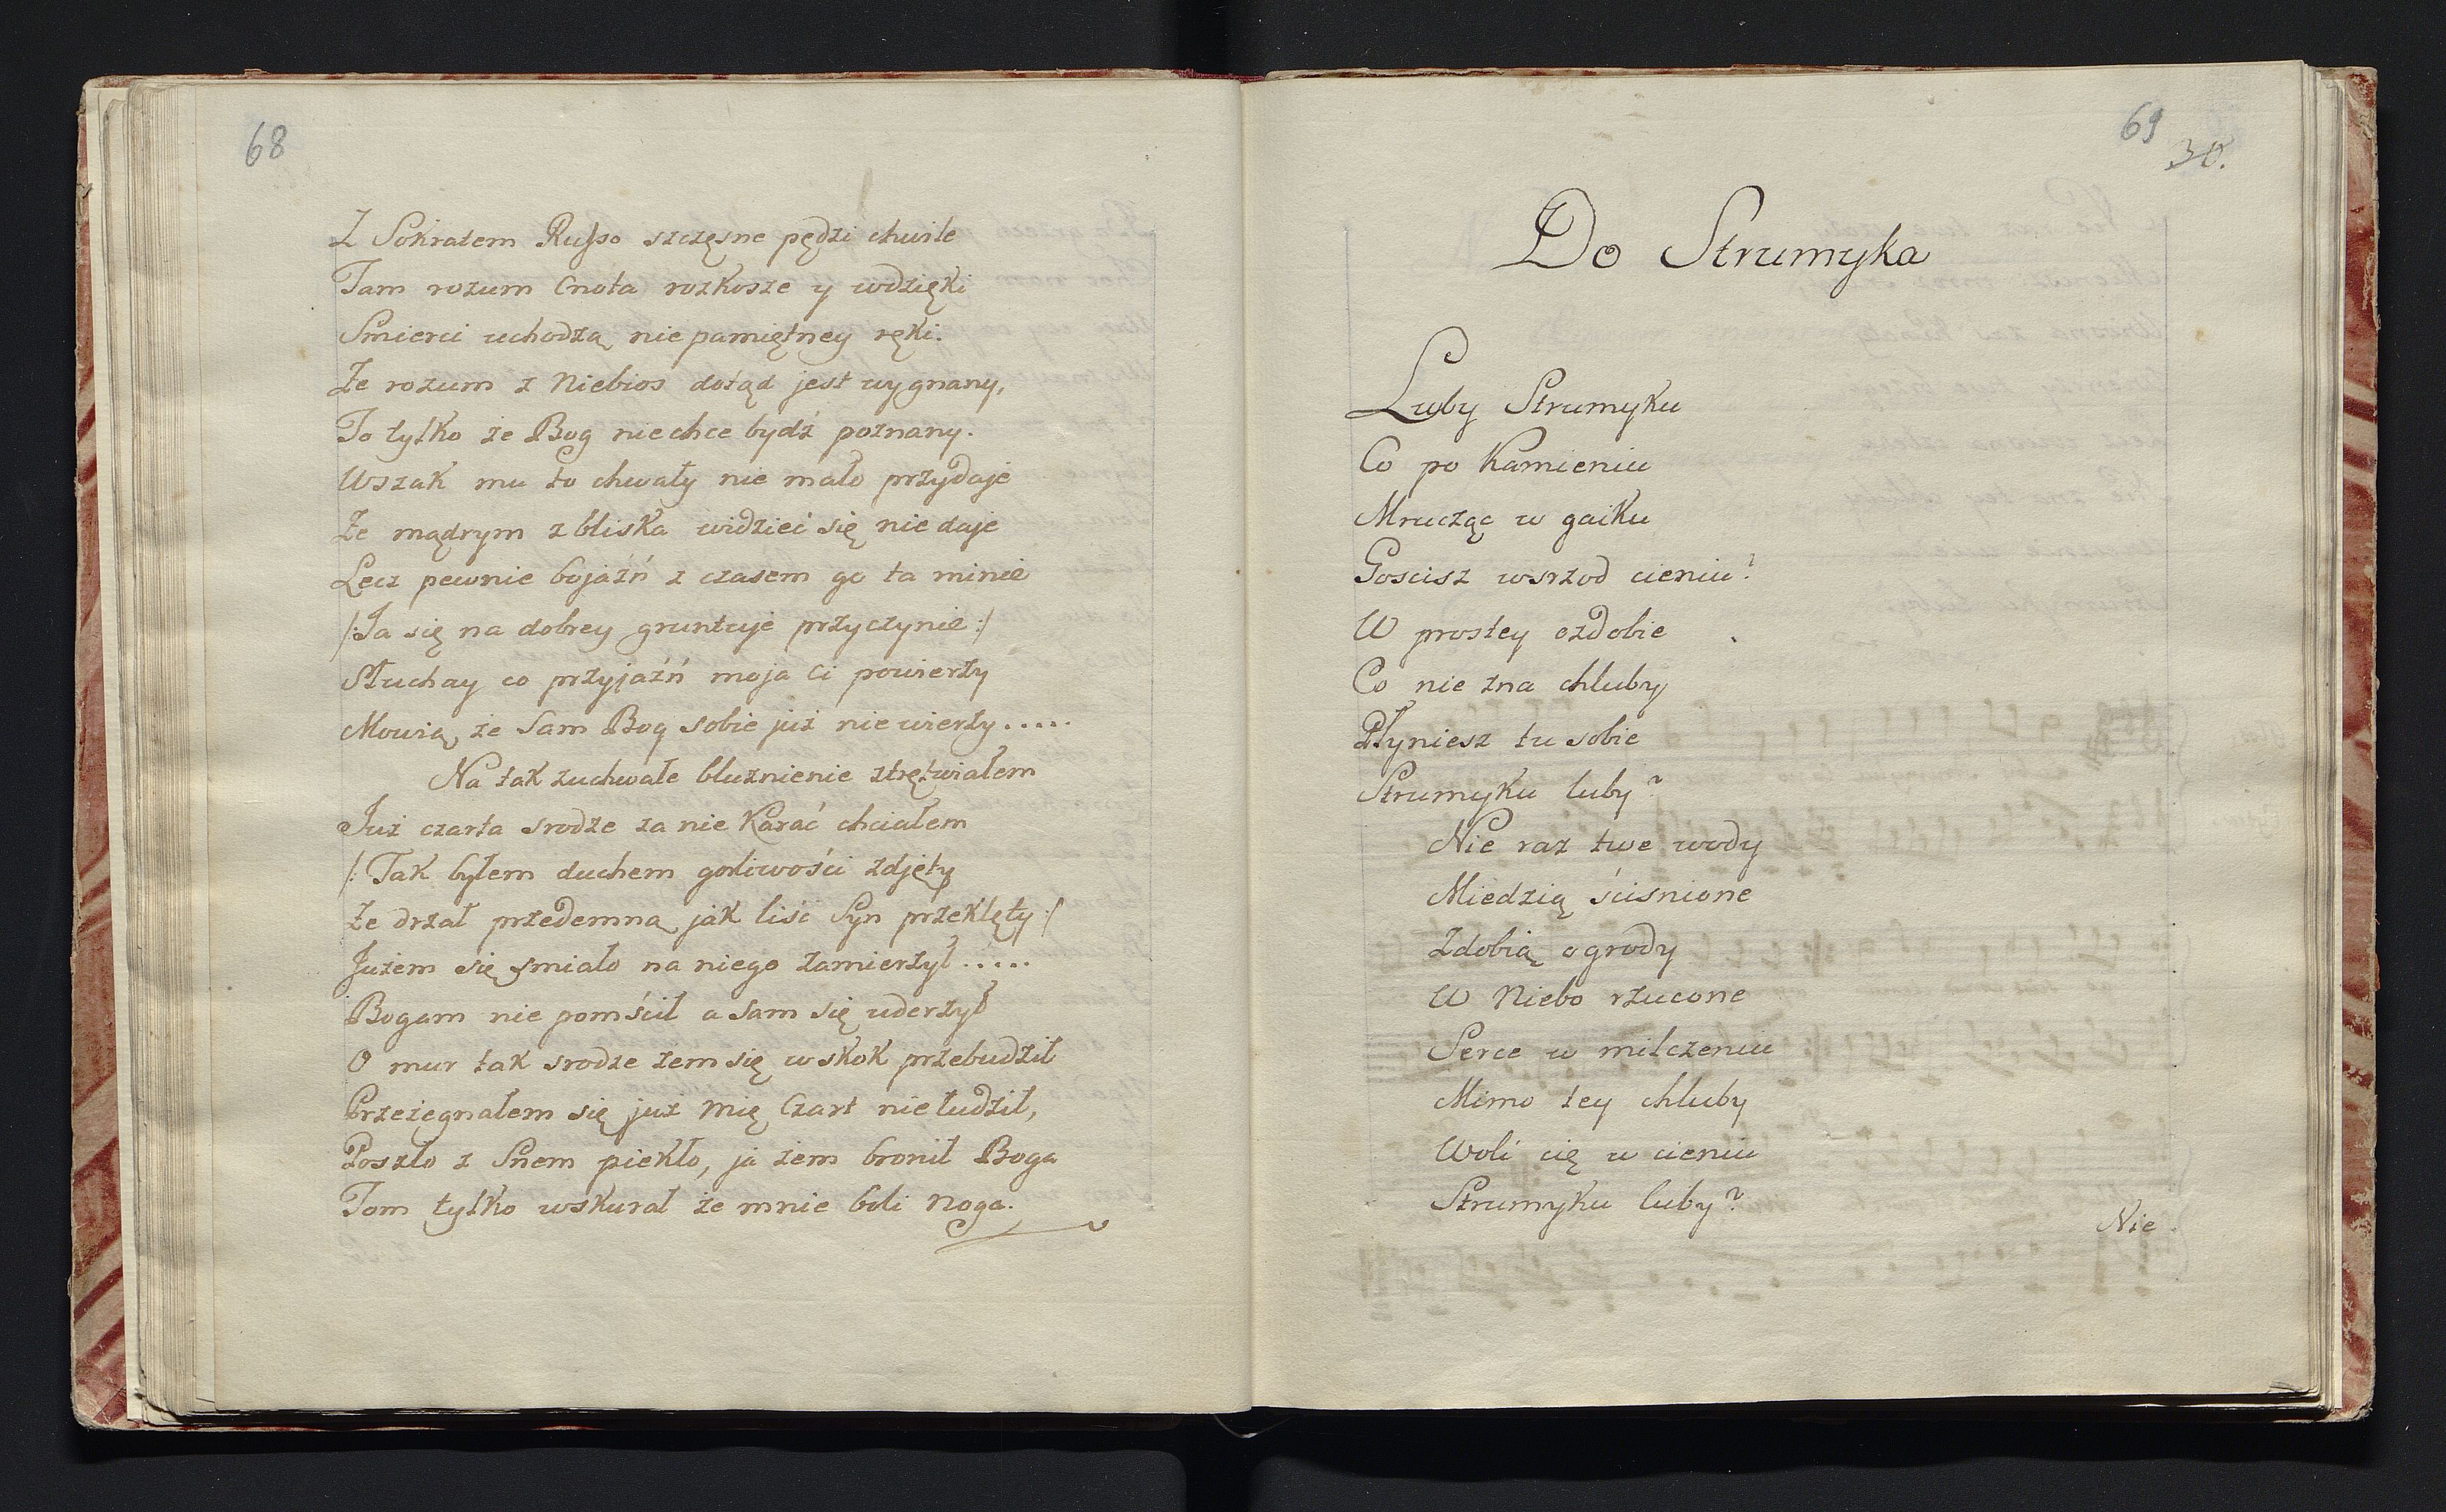 68
Z Sokratem Russo szczęsne pędzi chwile
Tam rozum Cnota rozkosze y wdzięki
Smierci uchodzą nie pamiętney ręki.
Że rozum z Niebios dotąd jest wygnany,
To tylko że Bog niechce bydź poznany.
Wszak mu to chwały nie mało przydaje
Że mądrym z bliska widzieć się nie daje
Lecz pewnie bojaźń z czasem go ta minie
/:Ja się na dobrey gruntuje przyczynie:/
Słuchay co przyjaźń moja Ci powierzy
Mowią że Sam Bog sobie już nie wierzy.....
Na tak zuchwałe bluznienie strętwiałem
Już czarta srodze za nie Karać chciałem
/: Tak byłem duchem gorliwości zdjęty
Że drżał przedemną jak liść Syn przeklęty:/
Jużem się smiało na niego zamierzył.....
Bogam nie pomścił a Sam się uderzył
O mur tak srodze żem się w skok przebudził
Przeżegnałem się już mię Czart nie łudził,
Poszło z Snem piekło, ja żem bronił Boga
Tom tylko wskurał że mnie boli Noga.
69
30.
Do Strumyka
Luby Strumyku
Co po Kamieniu
Mrucząc w gaiku
Goscisz wsrzod cieniu?
W prostey ozdobie
Co nie zna chluby
Płyniesz tu sobie
Strumyku luby?
Nie raz twe wody
Miedzią ściśnione
Zdobią ogrody
W Niebo rzucone
Serce w milczeniu
Mimo tey chluby
Woli cię w cieniu
Strumyku luby?
Nie